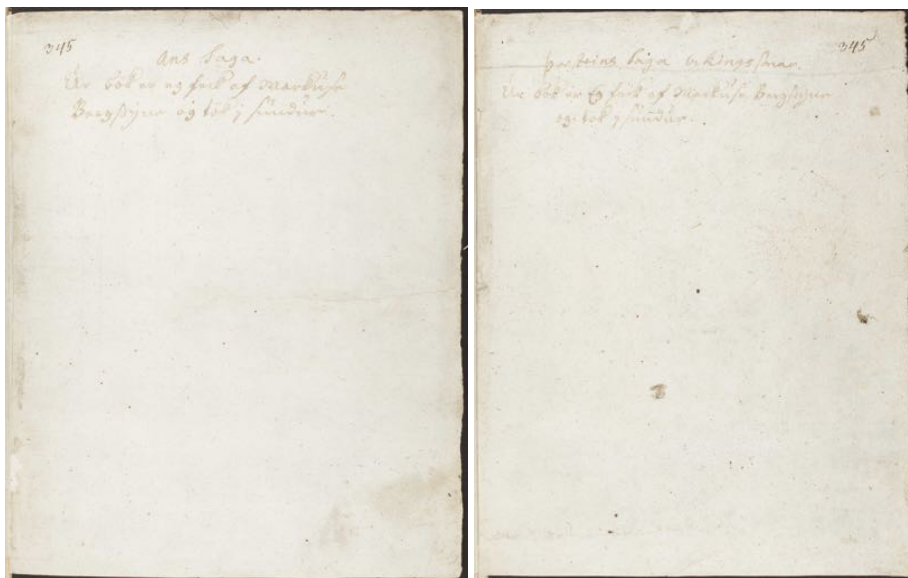 345
Ans Saga.
Ur bök er eg feck af Markuse
Bergssyne og tök j sundur.
345
Þorsteins Saga Vikingssonar.
Ur bök er Eg feck af Markuse Bergssyne
og tök j sundur.